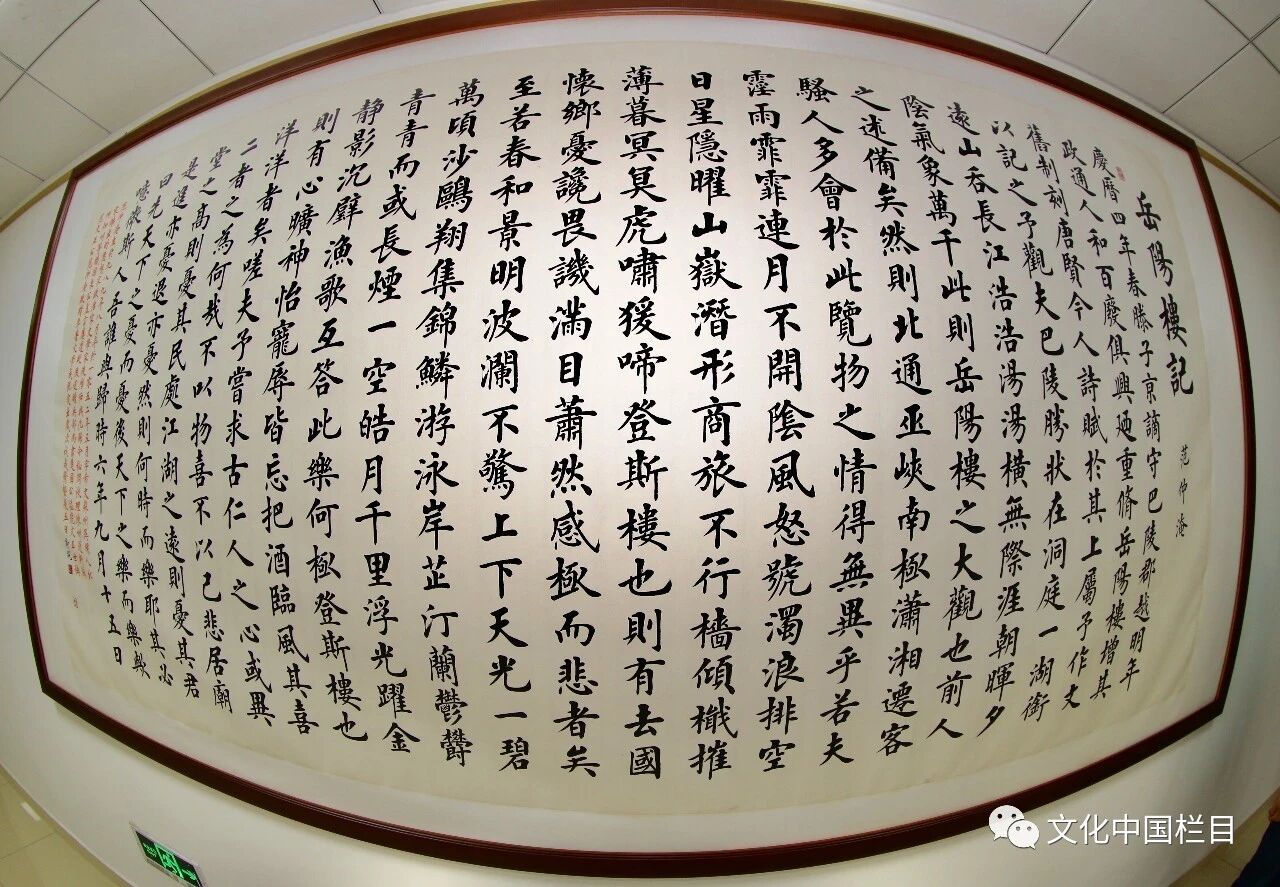 岳陽樓記
范仲淹
慶曆四年春滕子京謫守巴陵郡越明年
政通人和百廢俱興廼重脩岳陽樓增其
舊制刻唐賢今人詩賦於其上屬予作文
以記之予觀夫巴陵勝狀在洞庭一湖銜
遠山吞長江浩浩湯湯橫無際涯朝暉夕
陰氣象萬千此則岳陽樓之大觀也前人
之述備矣然則北通巫峽南極瀟湘遷客
騷人多會於此覽物之情得無異乎若夫
霪雨霏霏連月不開陰風怒號濁浪排空
日星隱曜山嶽潛形商旅不行檣傾檝摧
薄暮冥冥虎嘯猨啼登斯樓也則有去國
懷鄉憂讒畏譏滿目蕭然感極而悲者矣
至若春和景明波瀾不驚上下天光一碧
萬頃沙鷗翔集錦鱗游泳岸芷汀蘭鬱鬱
青青而或長煙一空皓月千里浮光躍金
静影沉壁漁歌互答此樂何極登斯樓也
則有心曠神怡寵辱皆忘把酒臨風其喜
洋洋者矣嗟夫予嘗求古仁人之心或異
二者之為何哉不以物喜不以己悲居廟
堂之高則憂其民處江湖之遠則憂其君
是進亦憂退亦憂然則何時而樂耶其必
曰先天下之憂而憂後天下之樂而樂歟
噫微斯人吾誰與歸時六年九月十五日
文化中国栏目